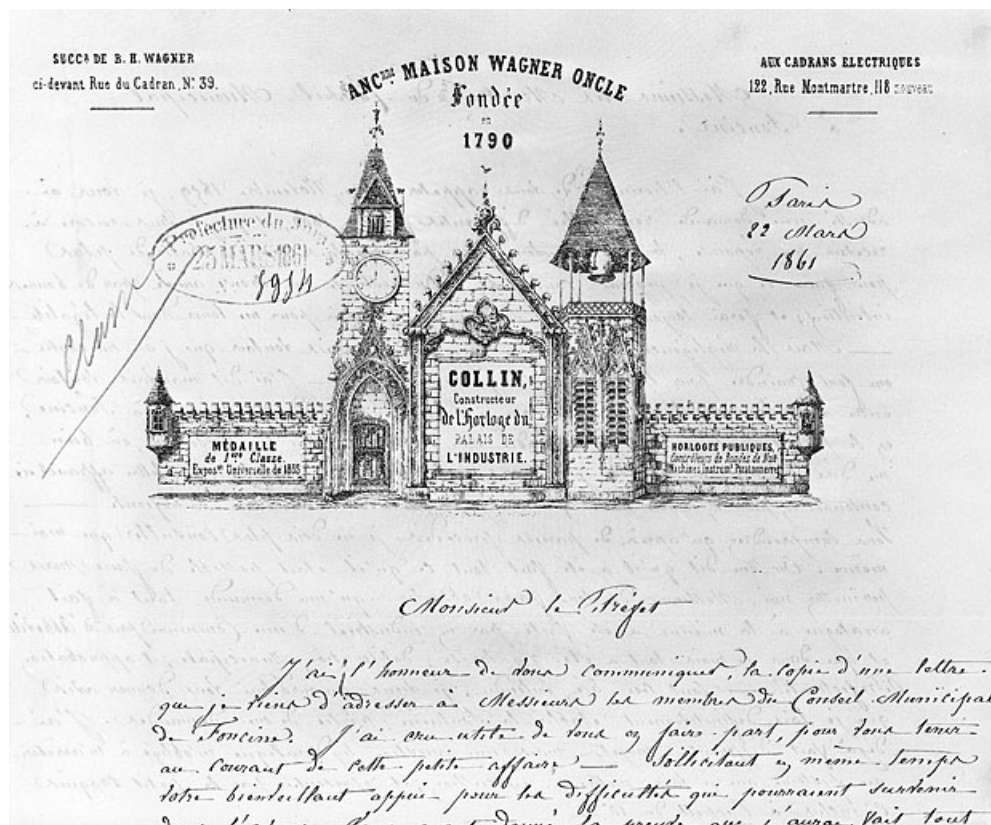 SUCCR DE B. H. WAGNER
ci-devant Rue du Cadran, No 39.
ANCNNE MAISON WAGNER ONCLE
Fondée
en
1790
AUX CADRANS ELECTRIQUES
122, Rue Montmartre, 118 nouveau
Paris
22 Mars
1861
Préfecture du Jura
25 MARS 1861
COLLIN,
Constructeur
de l'Horloge du
PALAIS DE
L'INDUSTRIE.
MÉDAILLE
de 1ère Classe.
Exposon Universelle de 1855
HORLOGES PUBLIQUES,
Contrôleurs de Rondes de Nuit
Machines Instrumts
Monsieur le Préfet
J'ai l'honneur de vous communiquer, la copie d'une lettre
que je viens d'adresser à Messieurs les membres du Conseil Municipal
de Foncine. J'ai cru utile de vous en faire part, pour vous tenir
au courant de cette petite affaire — Sollicitant en même temps
votre bienveillant appui pour les difficultés qui pourraient survenir